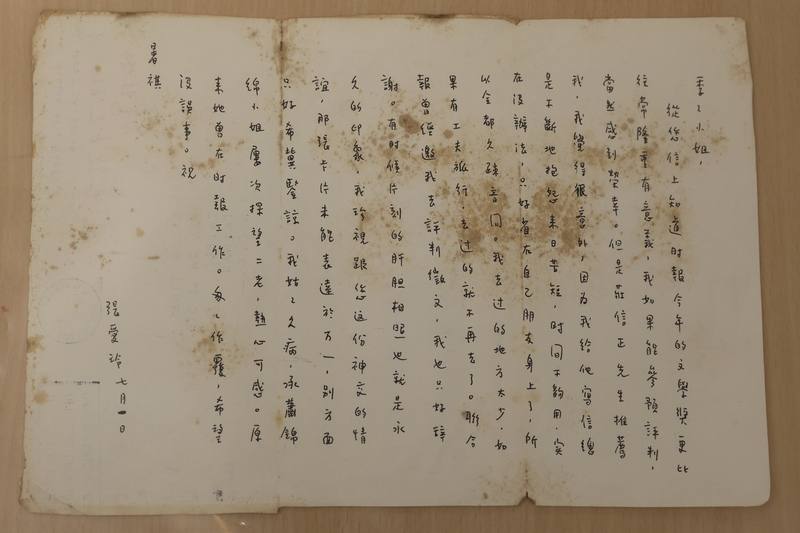 季季小姐，
從您信上知道时報今年的文學獎更比
往常隆重有意義，我如果能參預評判，
當然感到榮幸。但是莊信正先生推薦
我，我覺得很意外，因为我給他寫信總
是不斷地抱怨来日苦短，时间不夠用，实
在沒辦法，只好省在自己朋友身上了，所
以全都久疎音问。我去过的地方太少，如
果有工夫旅行，去过的就不再去了。聯合
報曾經邀我去評判徵文，我也只好辞
謝。有时候片刻的肝胆相照也就是永
久的印象，我珍視跟您这份神交的情
誼，那張卡片未能表達於万一，别方面
只好希冀鑒諒。我姑姑久病，承蕭錦
綿小姐屢次探望二老，熱心可感。原
来她曾在时報工作。匆匆作覆，希望
沒誤事。祝
暑祺
張愛玲 七月一日